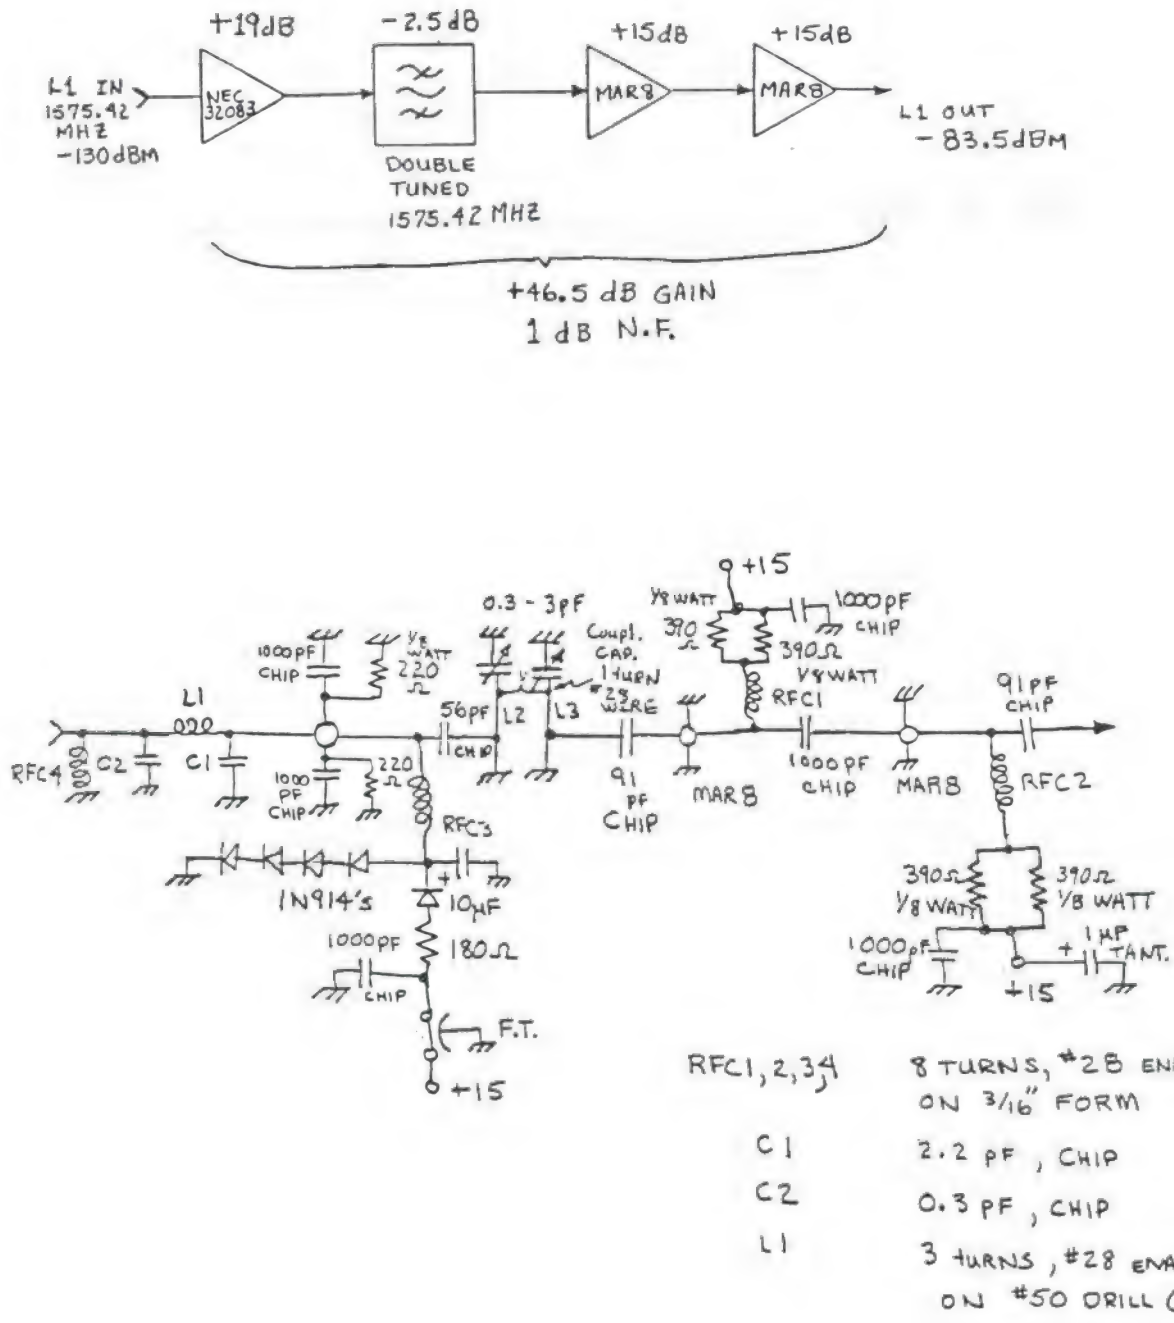 +19dB
-2.5dB
+15dB
+15dB
L1 IN
1575.42
MHZ
-130dBM
NEC
32083
MAR8
MAR8
L1 OUT
-83.5dBM
DOUBLE
TUNED
1575.42 MHZ
+46.5 dB GAIN
1 dB N.F.
+15
0.3 - 3pF
1/8 WATT
390
Ω
1000pF
CHIP
390Ω
1/8 WATT
1000pF
CHIP
1/8
WATT
220
Ω
Coupl.
CAP.
1 turn
#28
WIRE
L1
56pF
CHIP
L2
L3
RFC1
91pF
CHIP
RFC4
C2
C1
1000
PF
CHIP
220
Ω
91
pF
CHIP
MAR8
1000pF
CHIP
MAR8
RFC2
RFC3
1N914's
+
10µF
390Ω
1/8 WATT
390Ω
1/8 WATT
1000pF
CHIP
180Ω
1000pF
CHIP
+
1µF
TANT.
+15
F.T.
+15
RFC1,2,3,4
8 TURNS, #28
ON 3/16" FORM
C1
2.2 PF, CHIP
C2
0.3 PF, CHIP
L1
3 turns, #28
ON #50 DRILL